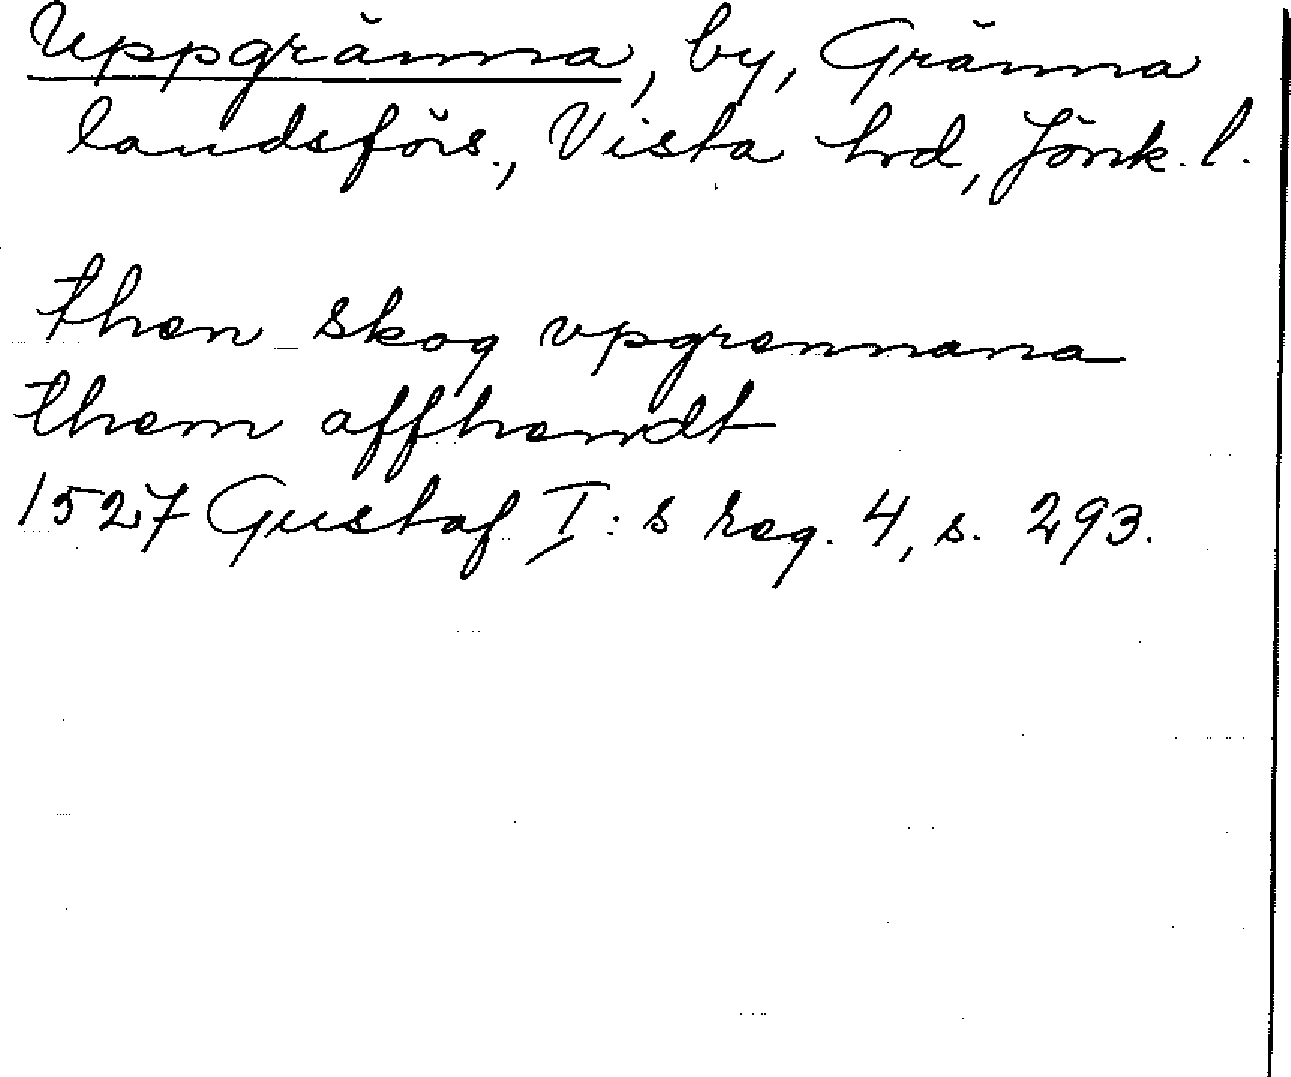 Uppgränna, by, Gränna
landsförs., Vista hrd, Jönk. l.
then skog vpgrennana
them affhendt
1527 Gustaf I:s reg. 4, s. 293.